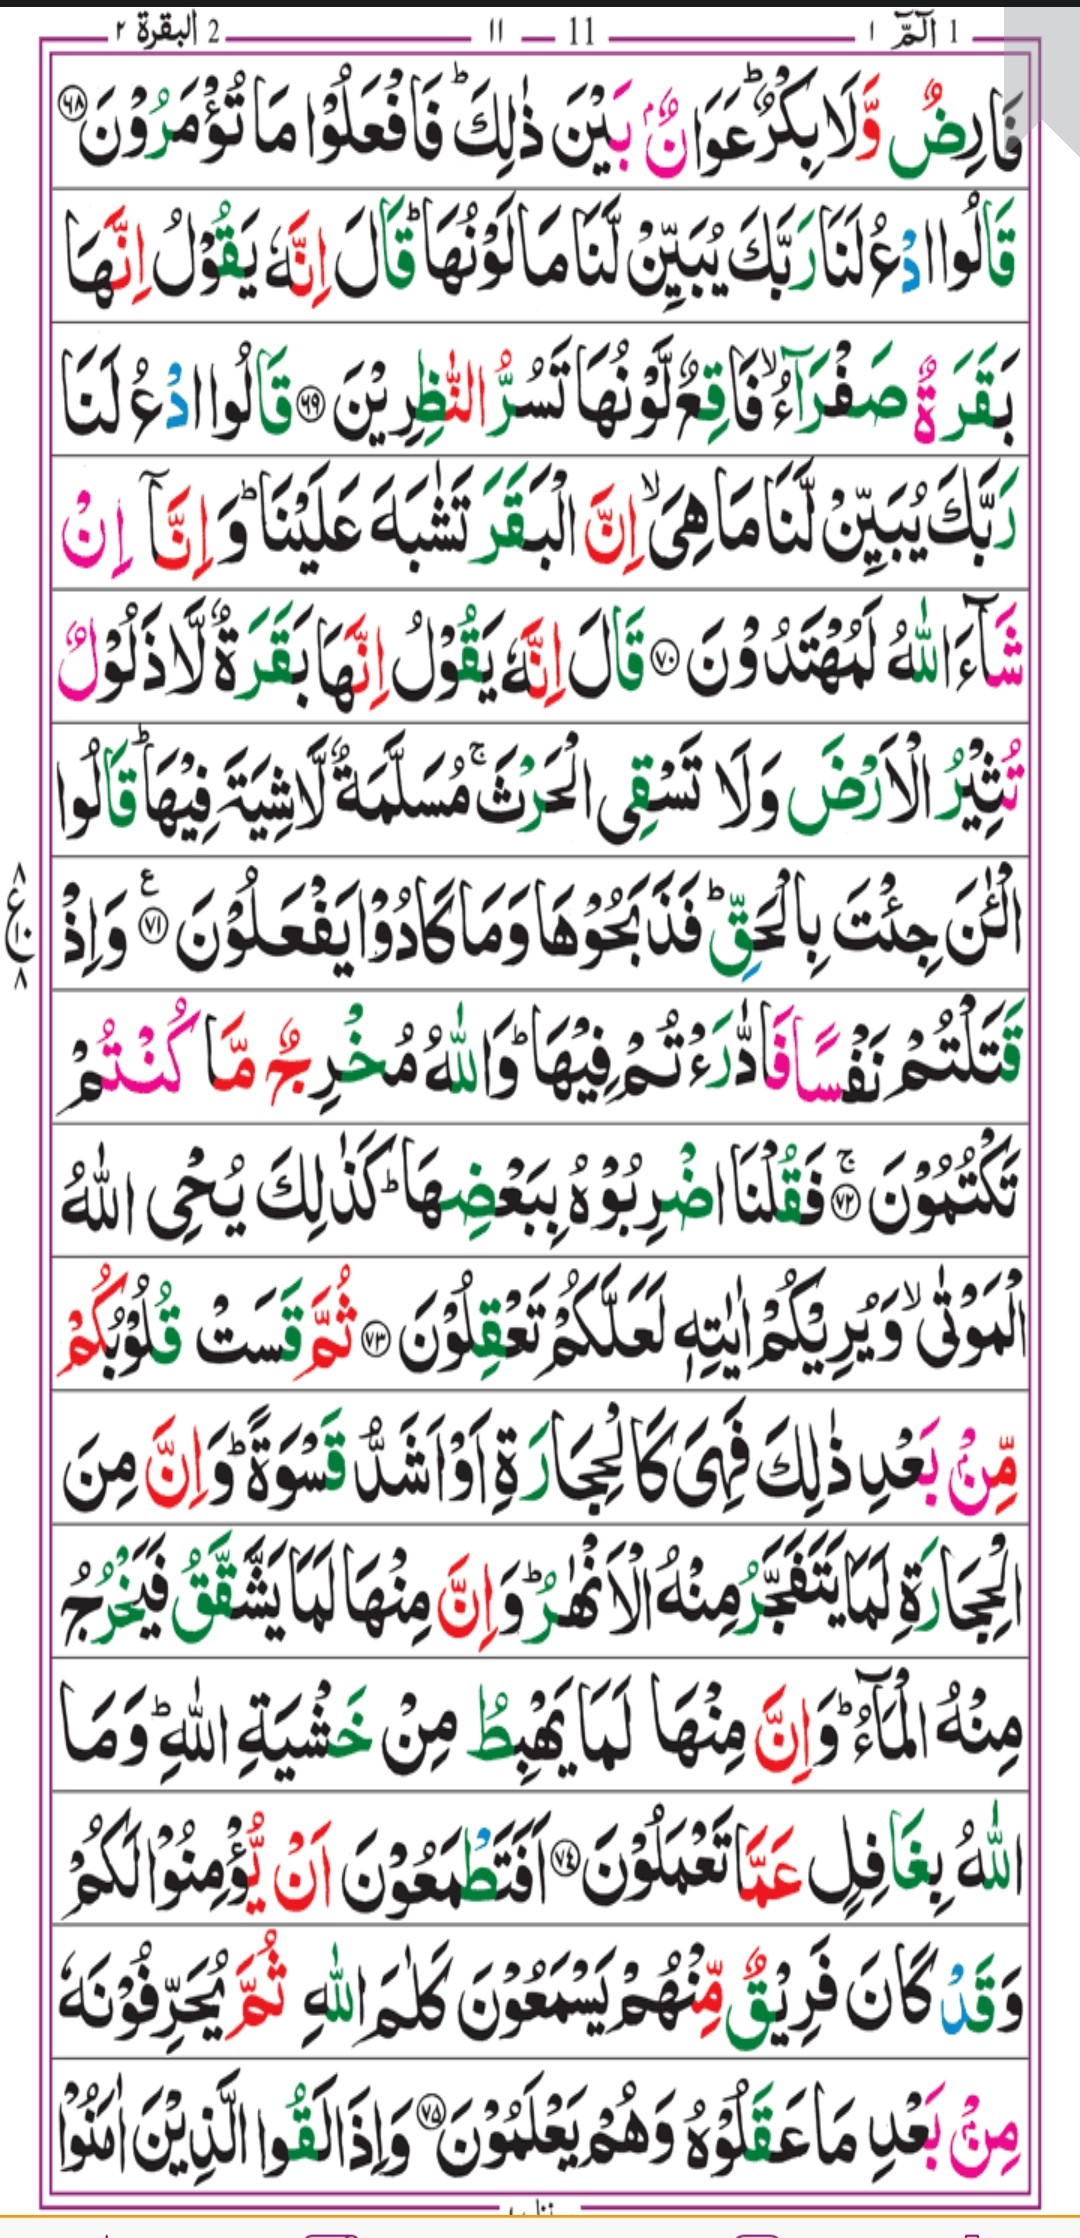 1 الٓمّٓ ١ 11 — ١١ 2 البقرة ٢
فَارِضٌ وَّلَا بِكْرٌ ؕ عَوَانٌۢ بَيْنَ ذٰلِكَ ؕ فَافْعَلُوْا مَا تُؤْمَرُوْنَ ﴿۶۸﴾
قَالُوا ادْعُ لَنَا رَبَّكَ يُبَيِّنْ لَّنَا مَا لَوْنُهَا ؕ قَالَ اِنَّهٗ يَقُوْلُ اِنَّهَا
بَقَرَةٌ صَفْرَآءُ ۙ فَاقِعٌ لَّوْنُهَا تَسُرُّ النّٰظِرِيْنَ ﴿۶۹﴾ قَالُوا ادْعُ لَنَا
رَبَّكَ يُبَيِّنْ لَّنَا مَا هِىَ ۙ اِنَّ الْبَقَرَ تَشٰبَهَ عَلَيْنَا ؕ وَاِنَّآ اِنْ
شَآءَ اللّٰهُ لَمُهْتَدُوْنَ ﴿۷۰﴾ قَالَ اِنَّهٗ يَقُوْلُ اِنَّهَا بَقَرَةٌ لَّا ذَلُوْلٌ
تُثِيْرُ الْاَرْضَ وَلَا تَسْقِى الْحَرْثَ ۚ مُسَلَّمَةٌ لَّا شِيَةَ فِيْهَا ؕ قَالُوا
الْـٰٔنَ جِئْتَ بِالْحَقِّ ؕ فَذَبَحُوْهَا وَمَا كَادُوْا يَفْعَلُوْنَ ﴿۷۱﴾ ع وَاِذْ
٨ ع ١٠ ٨
قَتَلْتُمْ نَفْسًا فَادّٰرَءْتُمْ فِيْهَا ؕ وَاللّٰهُ مُخْرِجٌ مَّا كُنْتُمْ
تَكْتُمُوْنَ ﴿۷۲﴾ ۚ فَقُلْنَا اضْرِبُوْهُ بِبَعْضِهَا ؕ كَذٰلِكَ يُحْىِ اللّٰهُ
الْمَوْتٰى ۙ وَيُرِيْكُمْ اٰيٰتِهٖ لَعَلَّكُمْ تَعْقِلُوْنَ ﴿۷۳﴾ ثُمَّ قَسَتْ قُلُوْبُكُمْ
مِّنْۢ بَعْدِ ذٰلِكَ فَهِىَ كَالْحِجَارَةِ اَوْ اَشَدُّ قَسْوَةً ؕ وَاِنَّ مِنَ
الْحِجَارَةِ لَمَا يَتَفَجَّرُ مِنْهُ الْاَنْهٰرُ ؕ وَاِنَّ مِنْهَا لَمَا يَشَّقَّقُ فَيَخْرُجُ
مِنْهُ الْمَآءُ ؕ وَاِنَّ مِنْهَا لَمَا يَهْبِطُ مِنْ خَشْيَةِ اللّٰهِ ؕ وَمَا
اللّٰهُ بِغَافِلٍ عَمَّا تَعْمَلُوْنَ ﴿۷۴﴾ اَفَتَطْمَعُوْنَ اَنْ يُّؤْمِنُوْا لَكُمْ
وَقَدْ كَانَ فَرِيْقٌ مِّنْهُمْ يَسْمَعُوْنَ كَلٰمَ اللّٰهِ ثُمَّ يُحَرِّفُوْنَهٗ
مِنْۢ بَعْدِ مَا عَقَلُوْهُ وَهُمْ يَعْلَمُوْنَ ﴿۷۵﴾ وَاِذَا لَقُوا الَّذِيْنَ اٰمَنُوْا